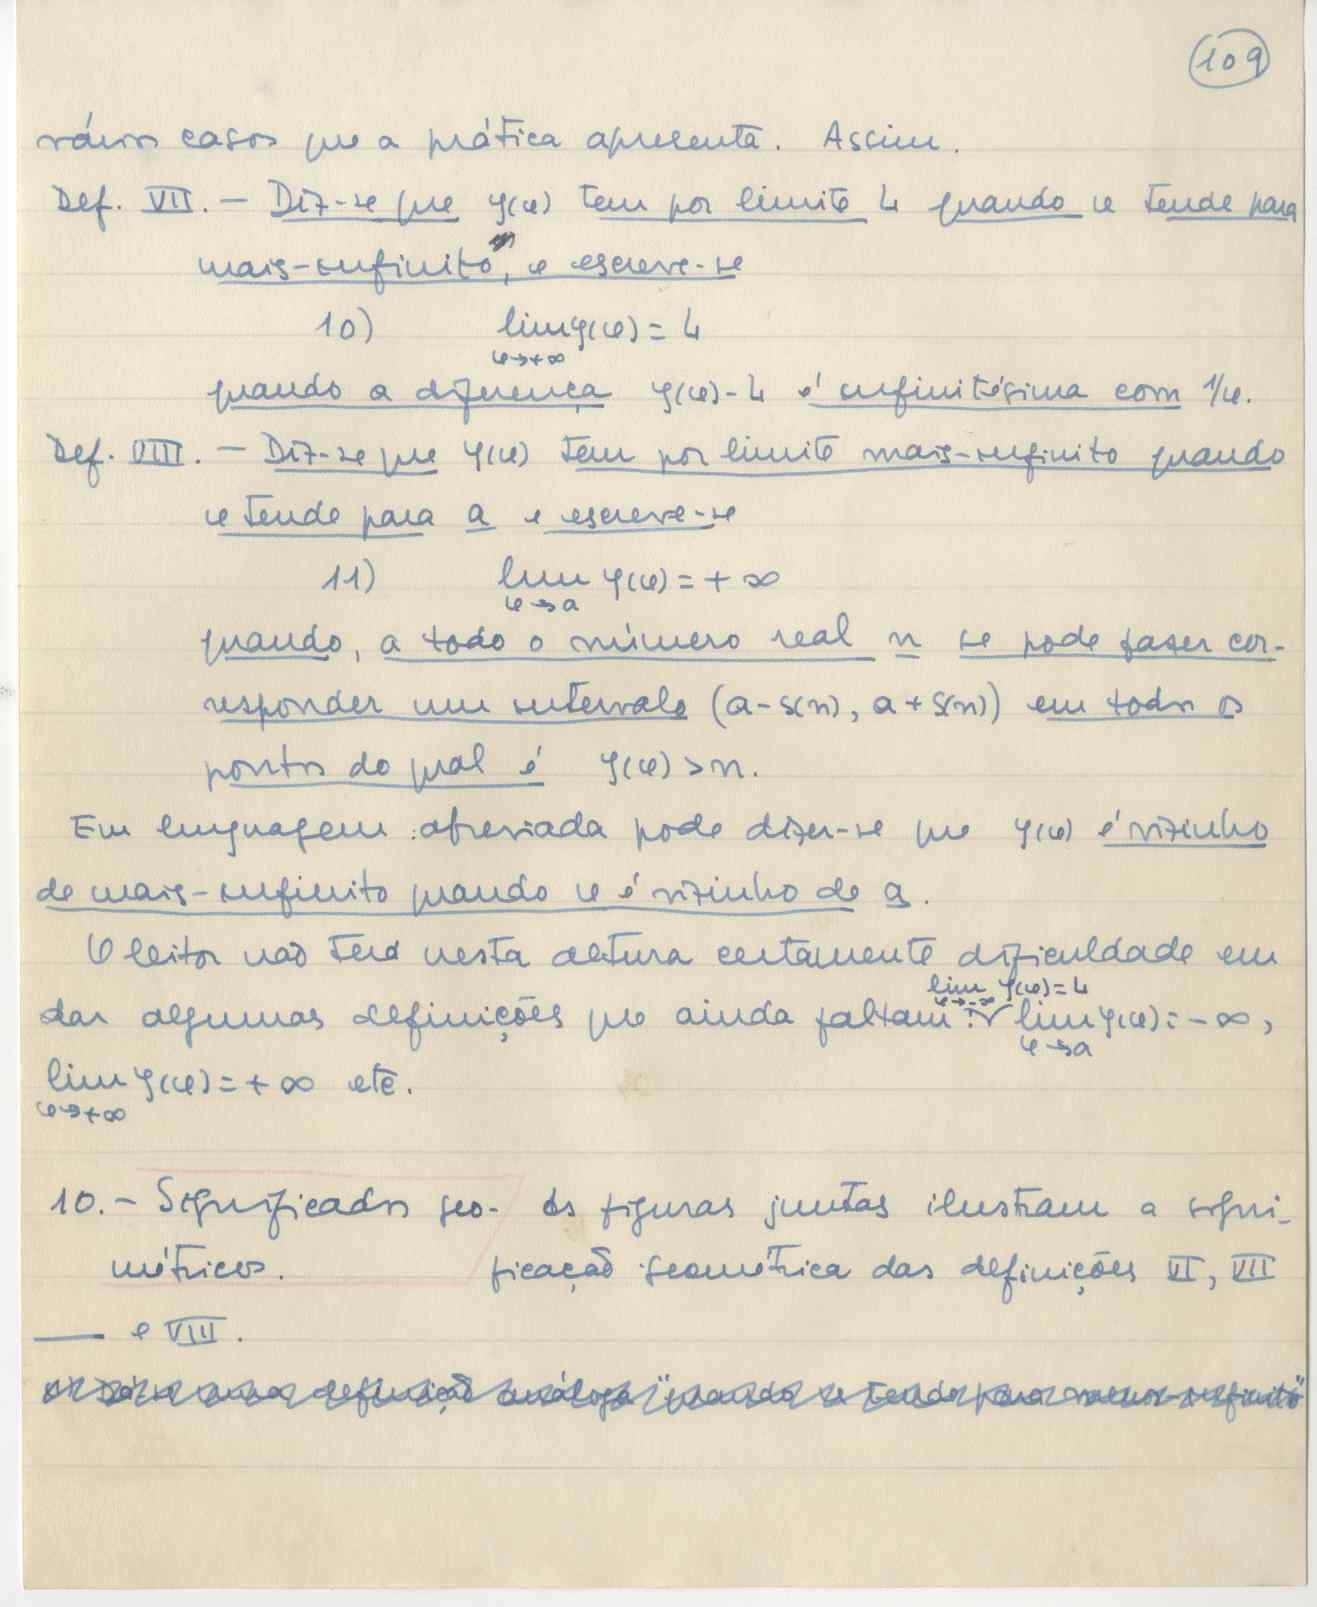 109
vários casos que a prática apresenta. Assim.
Def. VII. — Diz-se que y(x) tem por limite L quando x tende para
mais-infinito, e escreve-se
10) lim y(x) = L
x→+∞
quando a diferença y(x)-L é infinitésima com 1/x.
Def. VIII. — Diz-se que y(x) tem por limite mais-infinito quando
x tende para a e escreve-se
11) lim y(x) = + ∞
x→a
quando, a todo o número real n se pode fazer cor-
responder um intervalo (a-δ(n), a+δ(n)) em todos os
pontos do qual é y(x) > n.
Em linguagem abreviada pode dizer-se que y(x) é vizinho
de mais-infinito quando x é vizinho de a.
O leitor não terá nesta altura certamente dificuldade em
lim y(x) = L
x→-∞
dar algumas definições que ainda faltam: lim y(x) = -∞,
x→a
lim y(x) = + ∞ etc.
x→+∞
10. — Significados geo- As figuras juntas ilustram a signi-
métricos. ficação geométrica das definições VI, VII
— e VIII.
uma definição análoga "quando x tende para menos-infinito"